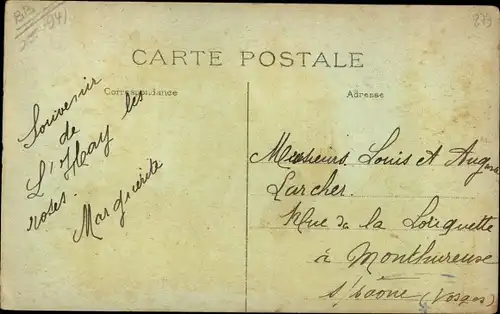 BB
1941
829
CARTE POSTALE
Correspondance
Adresse
Souvenir
de
L'Hay les
roses.
Marguerite
Messieurs Louis et Augus
Larcher.
Rue de la Loriquette
à Monthureux
s/Saône (Vosges)